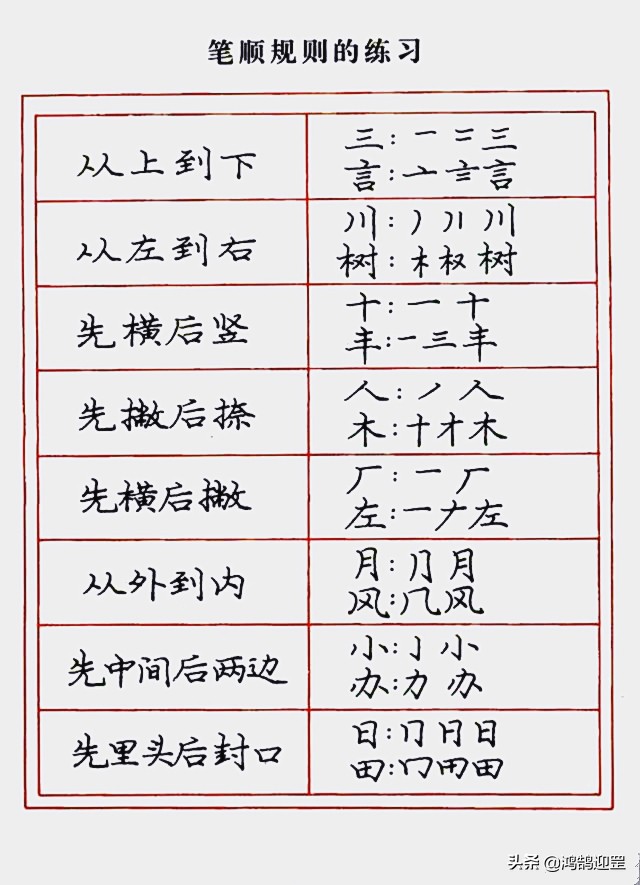 笔顺规则的练习
从上到下
三:一 二 三
言:亠 言 言
从左到右
川:丿 川 川
树:木 权 树
先横后竖
十:一 十
丰:一 三 丰
先撇后捺
人:丿 人
木:十 才 木
先横后撇
厂:一 厂
左:一 ナ 左
从外到内
月:⺆ 月
风:几 风
先中间后两边
小:亅 小
办:力 办
先里头后封口
日:冂 日 日
田:冂 用 田
头条 @鸿鹄迎罡